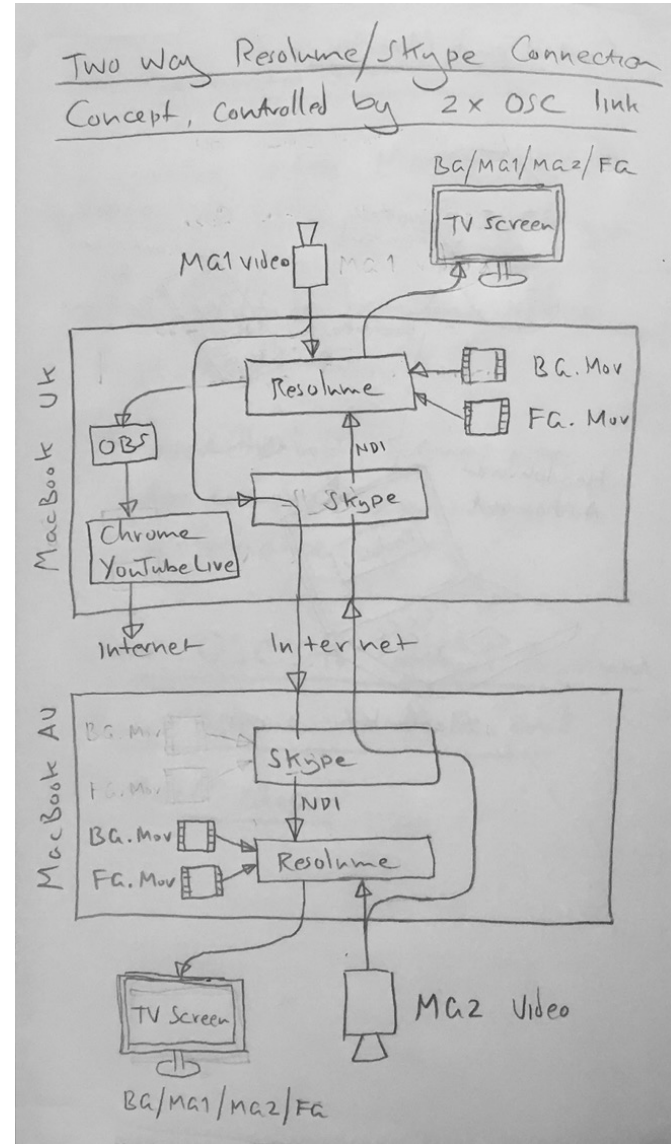 Two Way Resolume/Skype Connection
Concept, controlled by 2x OSC link
BG/MG1/MG2/FG
TV Screen
MG1 video
MG1
MacBook UK
Resolume
BG.Mov
FG.Mov
OBS
NDI
Skype
Chrome
YouTubeLive
Internet
Internet
MacBook AU
BG.Mov
Skype
FG.Mov
NDI
BG.Mov
Resolume
FG.Mov
TV Screen
MG2 Video
BG/MG1/MG2/FG